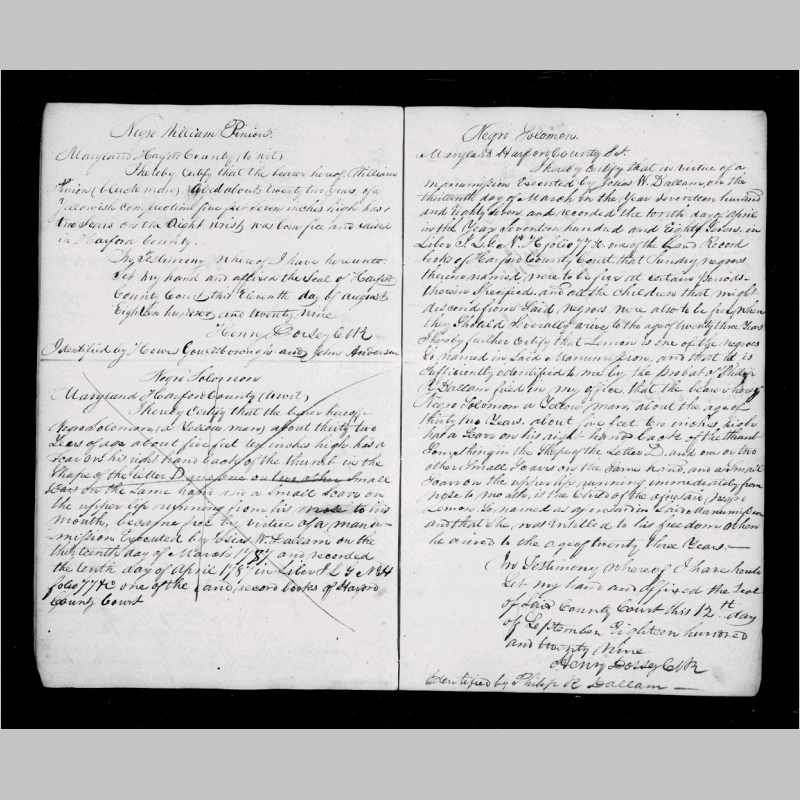 Negro William Pinion.
Maryland Harford County (to wit)
I hereby Certify that the bearer hereof William
Pinion (Black man) aged about twenty two years, of a
Yellowish complection five feet seven inches high has a
two scars on the Right wrist was born free and raised
in Harford County.
In Testimony whereof I have hereunto
Set my hand and affixed the Seal of Harford
County Court this Eleventh day of august
Eighteen hundred and twenty nine
Henry Dorsey Clk
Identified by and John Anderson
Negro Solomon
Maryland Harford County (to wit)
I hereby Certify that the bearer hereof
Negro Solomon (a Yellow man) about thirty two
Years of age about five feet ten inches high has a
Scar on his right hand back of the thumb in the
Shape of the letter D and one or two other Small
Scars on the Same hand and a Small Scar on
the upper lip running from his nose to his
mouth, became free by virtue of a manu-
mission Executed by Josias W. Dallam on the
thirteenth day of March 1787 and recorded
the tenth day of April 1787 in Liber J L G No H
folio 77 &c one of the Land record books of Harford
County Court
Negro Solomon
Maryland Harford County Sct.
I hereby Certify that in virtue of a
manumission executed by Josias W. Dallam, on the
thirteenth day of March in the Year Seventeen hundred
and Eighty Seven and recorded the tenth day of April
in the Year Seventeen hundred and Eighty Seven, in
Liber J. L. G. No. H folio 77 &c. one of the Land Record
books of Harford County Court, that Sundry negroes
therein named, were to be free at certain periods
therein Specified, and all the children that might
descend from Said negroes were also to be free when
they Should Severally arrive to the age of twenty three Years
I hereby further Certify that Lemon is one of the negroes
So named in Said Manumission, and that it is
Sufficiently identified to me by the probat of Philip
R Dallam filed in my office that the bearer hereof
Negro Solomon a Yellow man, about the age of
thirty two Years, about five feet ten inches high
has a Scar on his right hand back of the thumb
Something in the Shape of the Letter D. and one or two
other Small Scars on the Same hand, and a Small
Scar on the upper lip, running immediately from
nose to mouth, is the Child of the aforesaid, negro
Lemon So named as aforesaid in Said Manumission
and that he was intitled to his freedom when
he arrived to the age of twenty three Years.—
In Testimony whereof I have hereto
Set my hand and affixed the Seal
of Said County Court this 12th day
of September Eighteen hundred
and twenty Nine
Henry Dorsey Clk
Identified by Philip R Dallam —